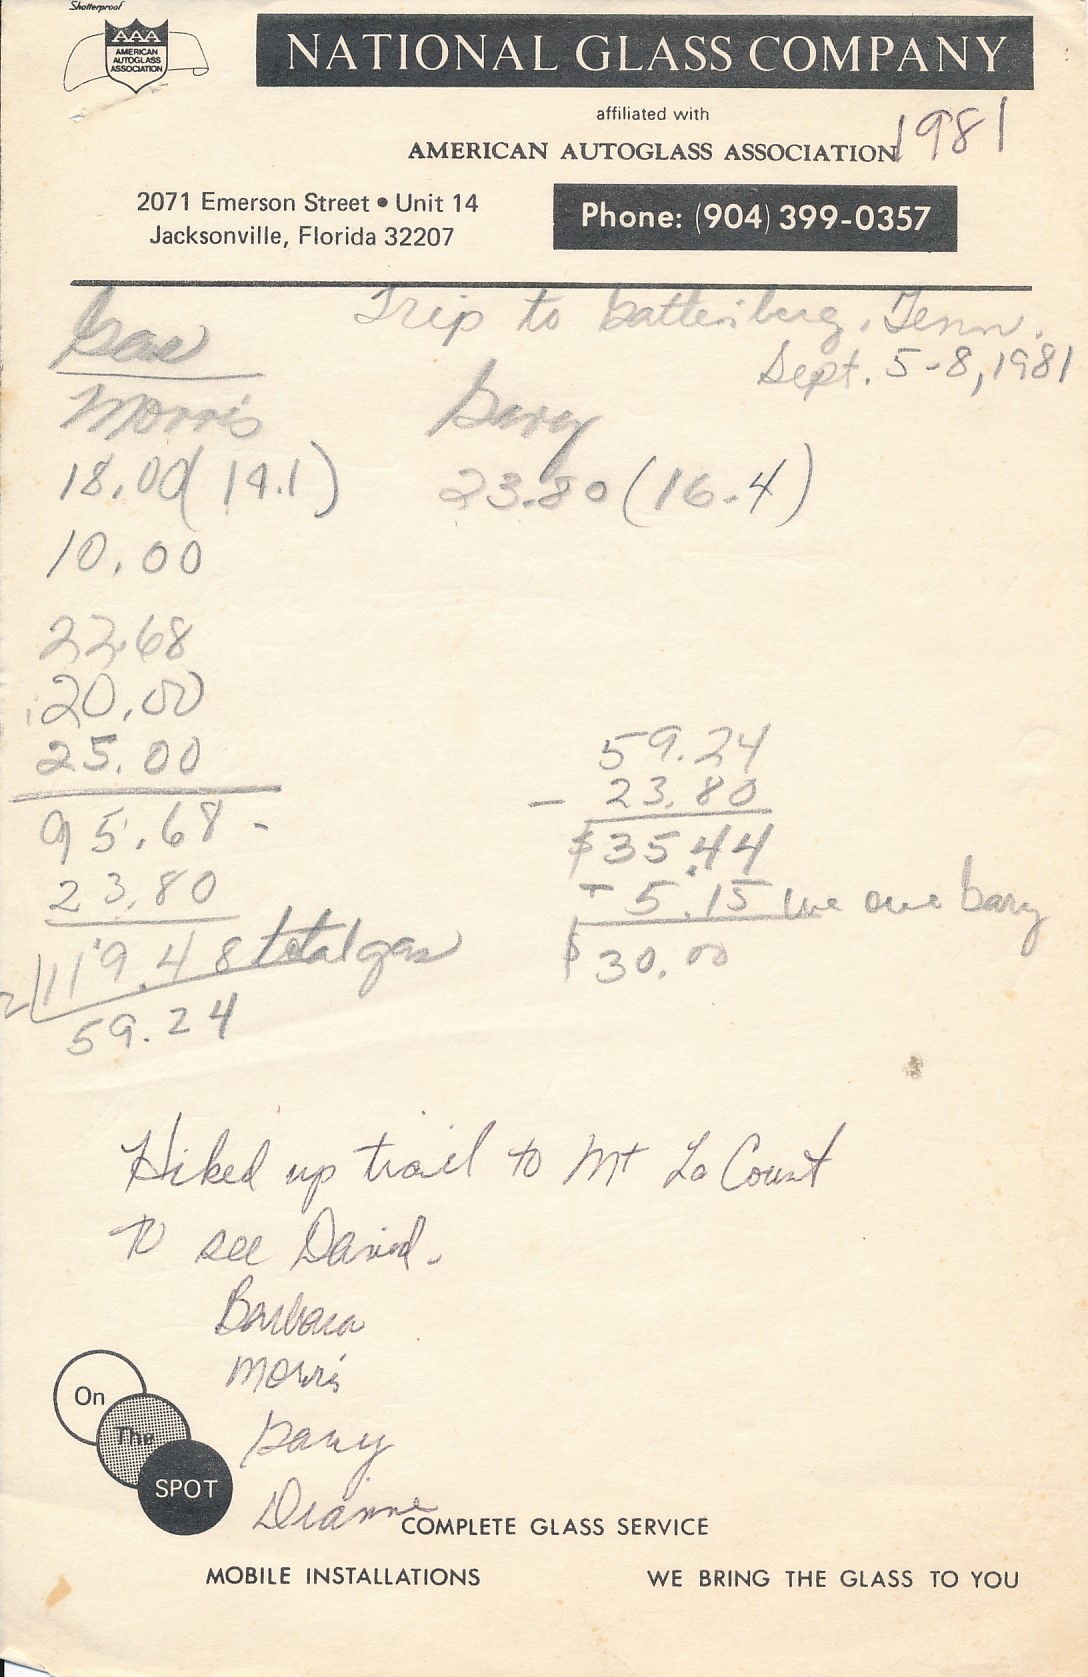 Shatterproof
AAA
AMERICAN
AUTOGLASS
ASSOCIATION
NATIONAL GLASS COMPANY
affiliated with
AMERICAN AUTOGLASS ASSOCIATION
1981
2071 Emerson Street • Unit 14
Jacksonville, Florida 32207
Phone: (904) 399-0357
Gas
Trip to Gattenberg, Tenn.
Sept. 5-8, 1981
Morris Gary
18.00 (14.1) 23.80 (16.4)
10.00
22.68
20.00
25.00
95.68 -
23.80
2 119.48 total gas
59.24
59.24
- 23.80
$35.44
- 5.15 we owe Gary
$30.00
Hiked up trail to Mt La Count
to see David.
Barbara
Morris
Gary
Dianne
On
The
SPOT
COMPLETE GLASS SERVICE
MOBILE INSTALLATIONS WE BRING THE GLASS TO YOU